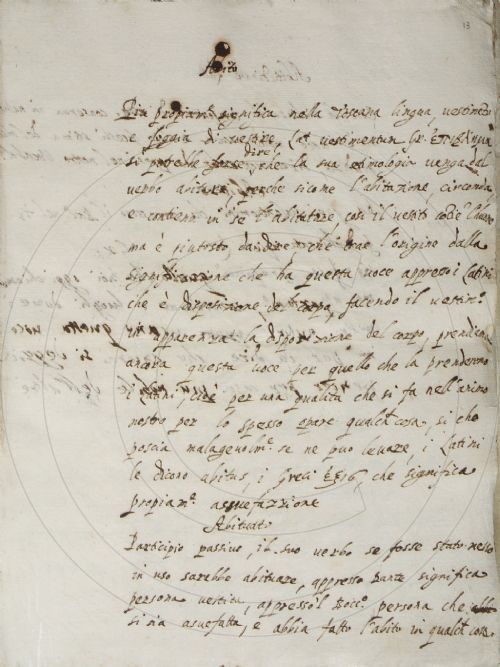 13
Abito
Più propiam.te significa nella Toscana lingua vestimento
e foggia di vestire, Lat vestimentum Gr.
si potrebbe forse dire che la sua etimologia venga dal
verbo abitare, perche sicome l'abitazione circonda
e contiene in se l'abitatore così il vestito
ma è piutosto da dire che trae l'origine dalla
significazione che ha questa voce appresso i Latini
che è disposizione de corpo, facendo il vestire
apparenza la disposizione del corpo, prendesi
ancora questa voce per quello che la prenderono
i Latini cioè per una qualità che si fa nell'animo
nostro per lo spesso opare qualch cosa, si che
poscia malagevolm.e se ne può levare, i Latini
le dicono abitus, i Greci ἕξις, che significa
propiam.e asuefazzione
Abituato
Participio passivo, il suo verbo se fosse stato messo
in uso sarebbe abituare, appresso Dante significa
persona vestita, appresso'l Bocc. persona che
si sia asuefatta, e abbia fatto l'abito in qualch cosa